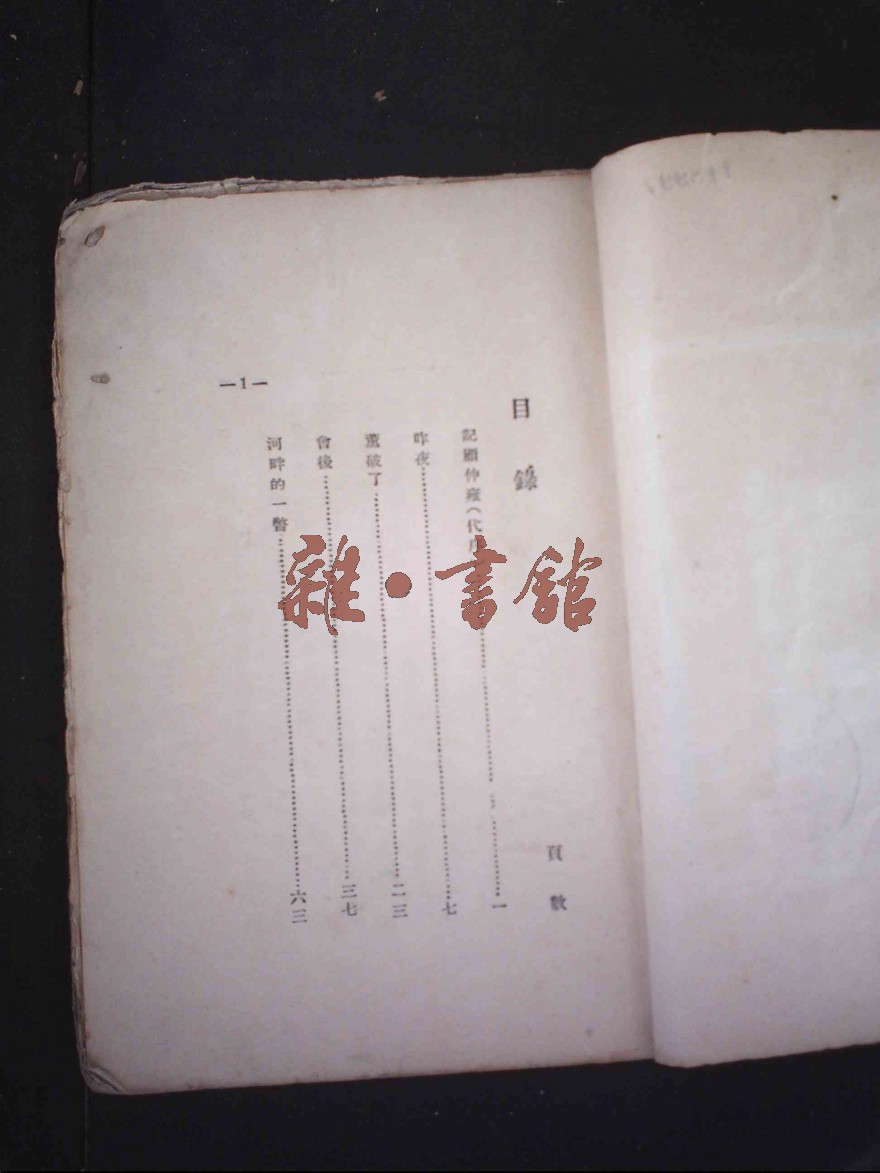 目錄
頁數
記顧仲雍(代序 一
昨夜 七
薰破了 二三
會後 三七
河畔的一瞥 六三
—1—
雜·書館